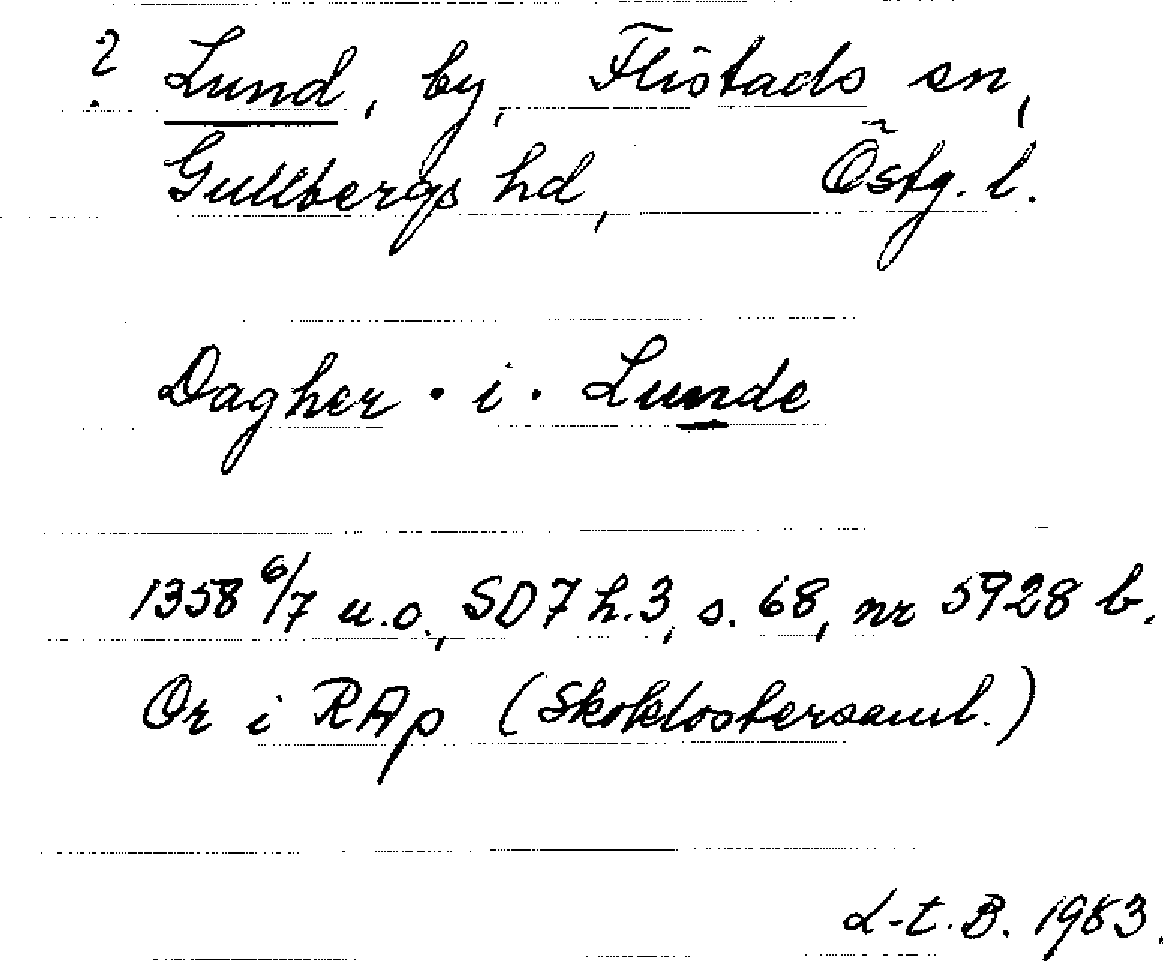 ? Lund, by, Flistads sn,
Gullbergs hd, Östg. l.
Dagher · i · Lunde
1358 6/7 u.o., SD7 h.3, s. 68, nr 5928 b.
Or i RAp (Skoklostersaml.)
L-t. B. 1983.